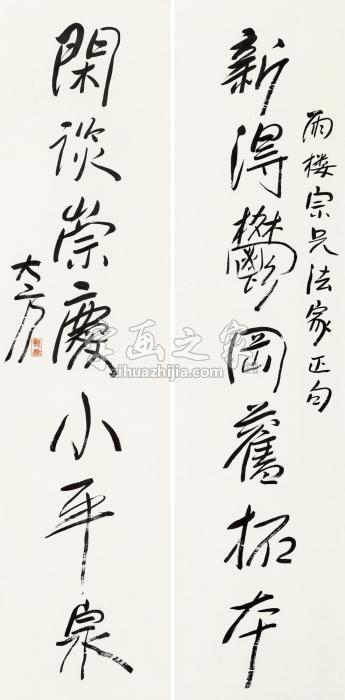 雨楼宗兄法家正句
新得鬱岡舊拓本
閑談崇慶小平泉
大方
字画之家
zihuazhijia.com